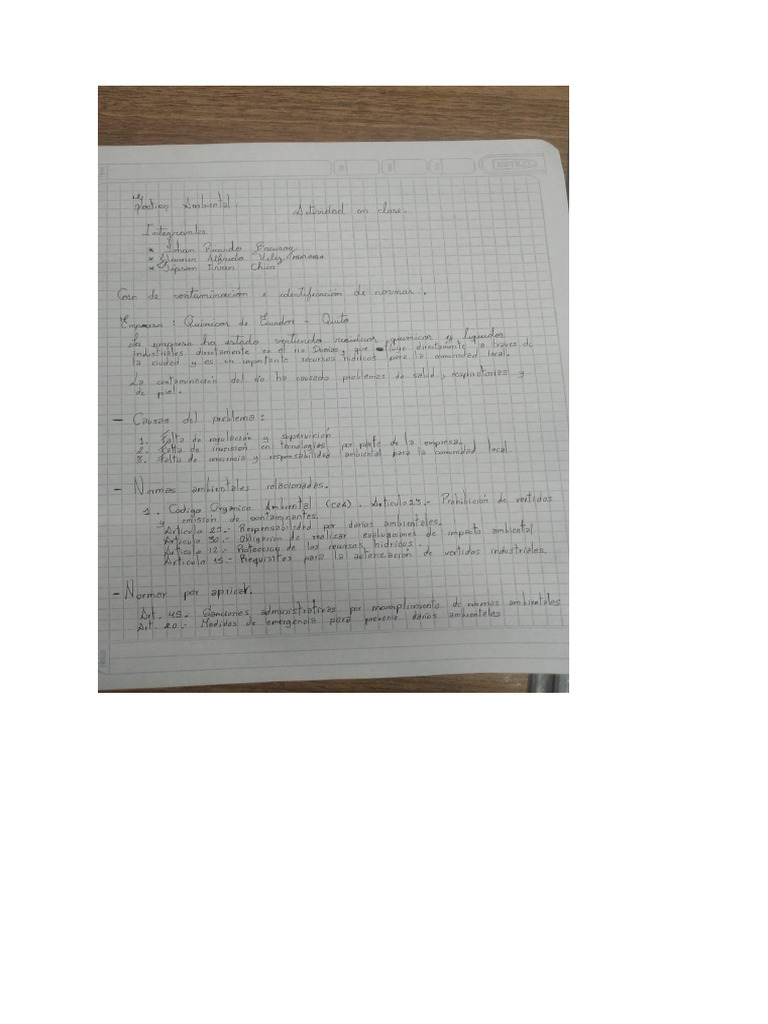 Gestion Ambiental. Actividad en clase.
Integrantes
* Johan Ricardo
* Alfredo Veliz
*
Caso de contaminación e identificación de normas.
Empresa: Quimicos de Ecuador - Quito
La empresa ha estado vertiendo residuos quimicos y liquidos
industriales directamente en el rio que fluye directamente a traves de
la ciudad y es un importante recursos hidricos para la comunidad local.
La contaminación del río ha causado problemas de salud, respiratorias y
de piel.
- Causas del problema:
1. Falta de regulación y supervición
2. Falta de en tecnologias por parte de la empresa.
3. Falta de conciencia y responsabilidad ambiental para la comunidad local.
- Normas ambientales relacionadas.
1. Codigo Organico Ambiental (COA). Articulo 23.- Prohibición de vertidos
y emisión de contaminantes.
Articulo 25.- Responsabilidad por daños ambientales.
Articulo 30.- Obligación de realizar evaluaciones de impacto ambiental
Articulo 12.- Proteccion de los recursos hidricos.
Articulo 15.- Requisitos para la autorización de vertidos industriales.
- Normas por apricar.
Art. 45.- Sanciones administrativas por incumplimiento de normas ambientales
Art. 20.- Medidas de emergencia para prevenir daños ambientales